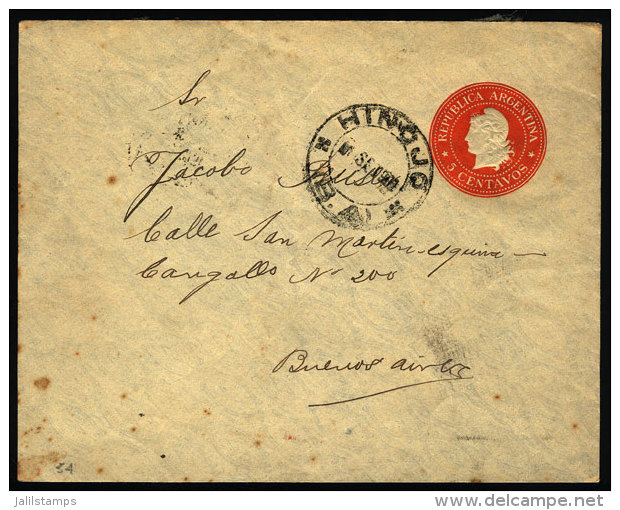 Sr
REPUBLICA ARGENTINA
5 CENTAVOS
HINOJO
B.A.
Jacobo
Calle San Martin esquina
Cangallo No 200
Buenos aires
54
jalilstamps
delcampe.net